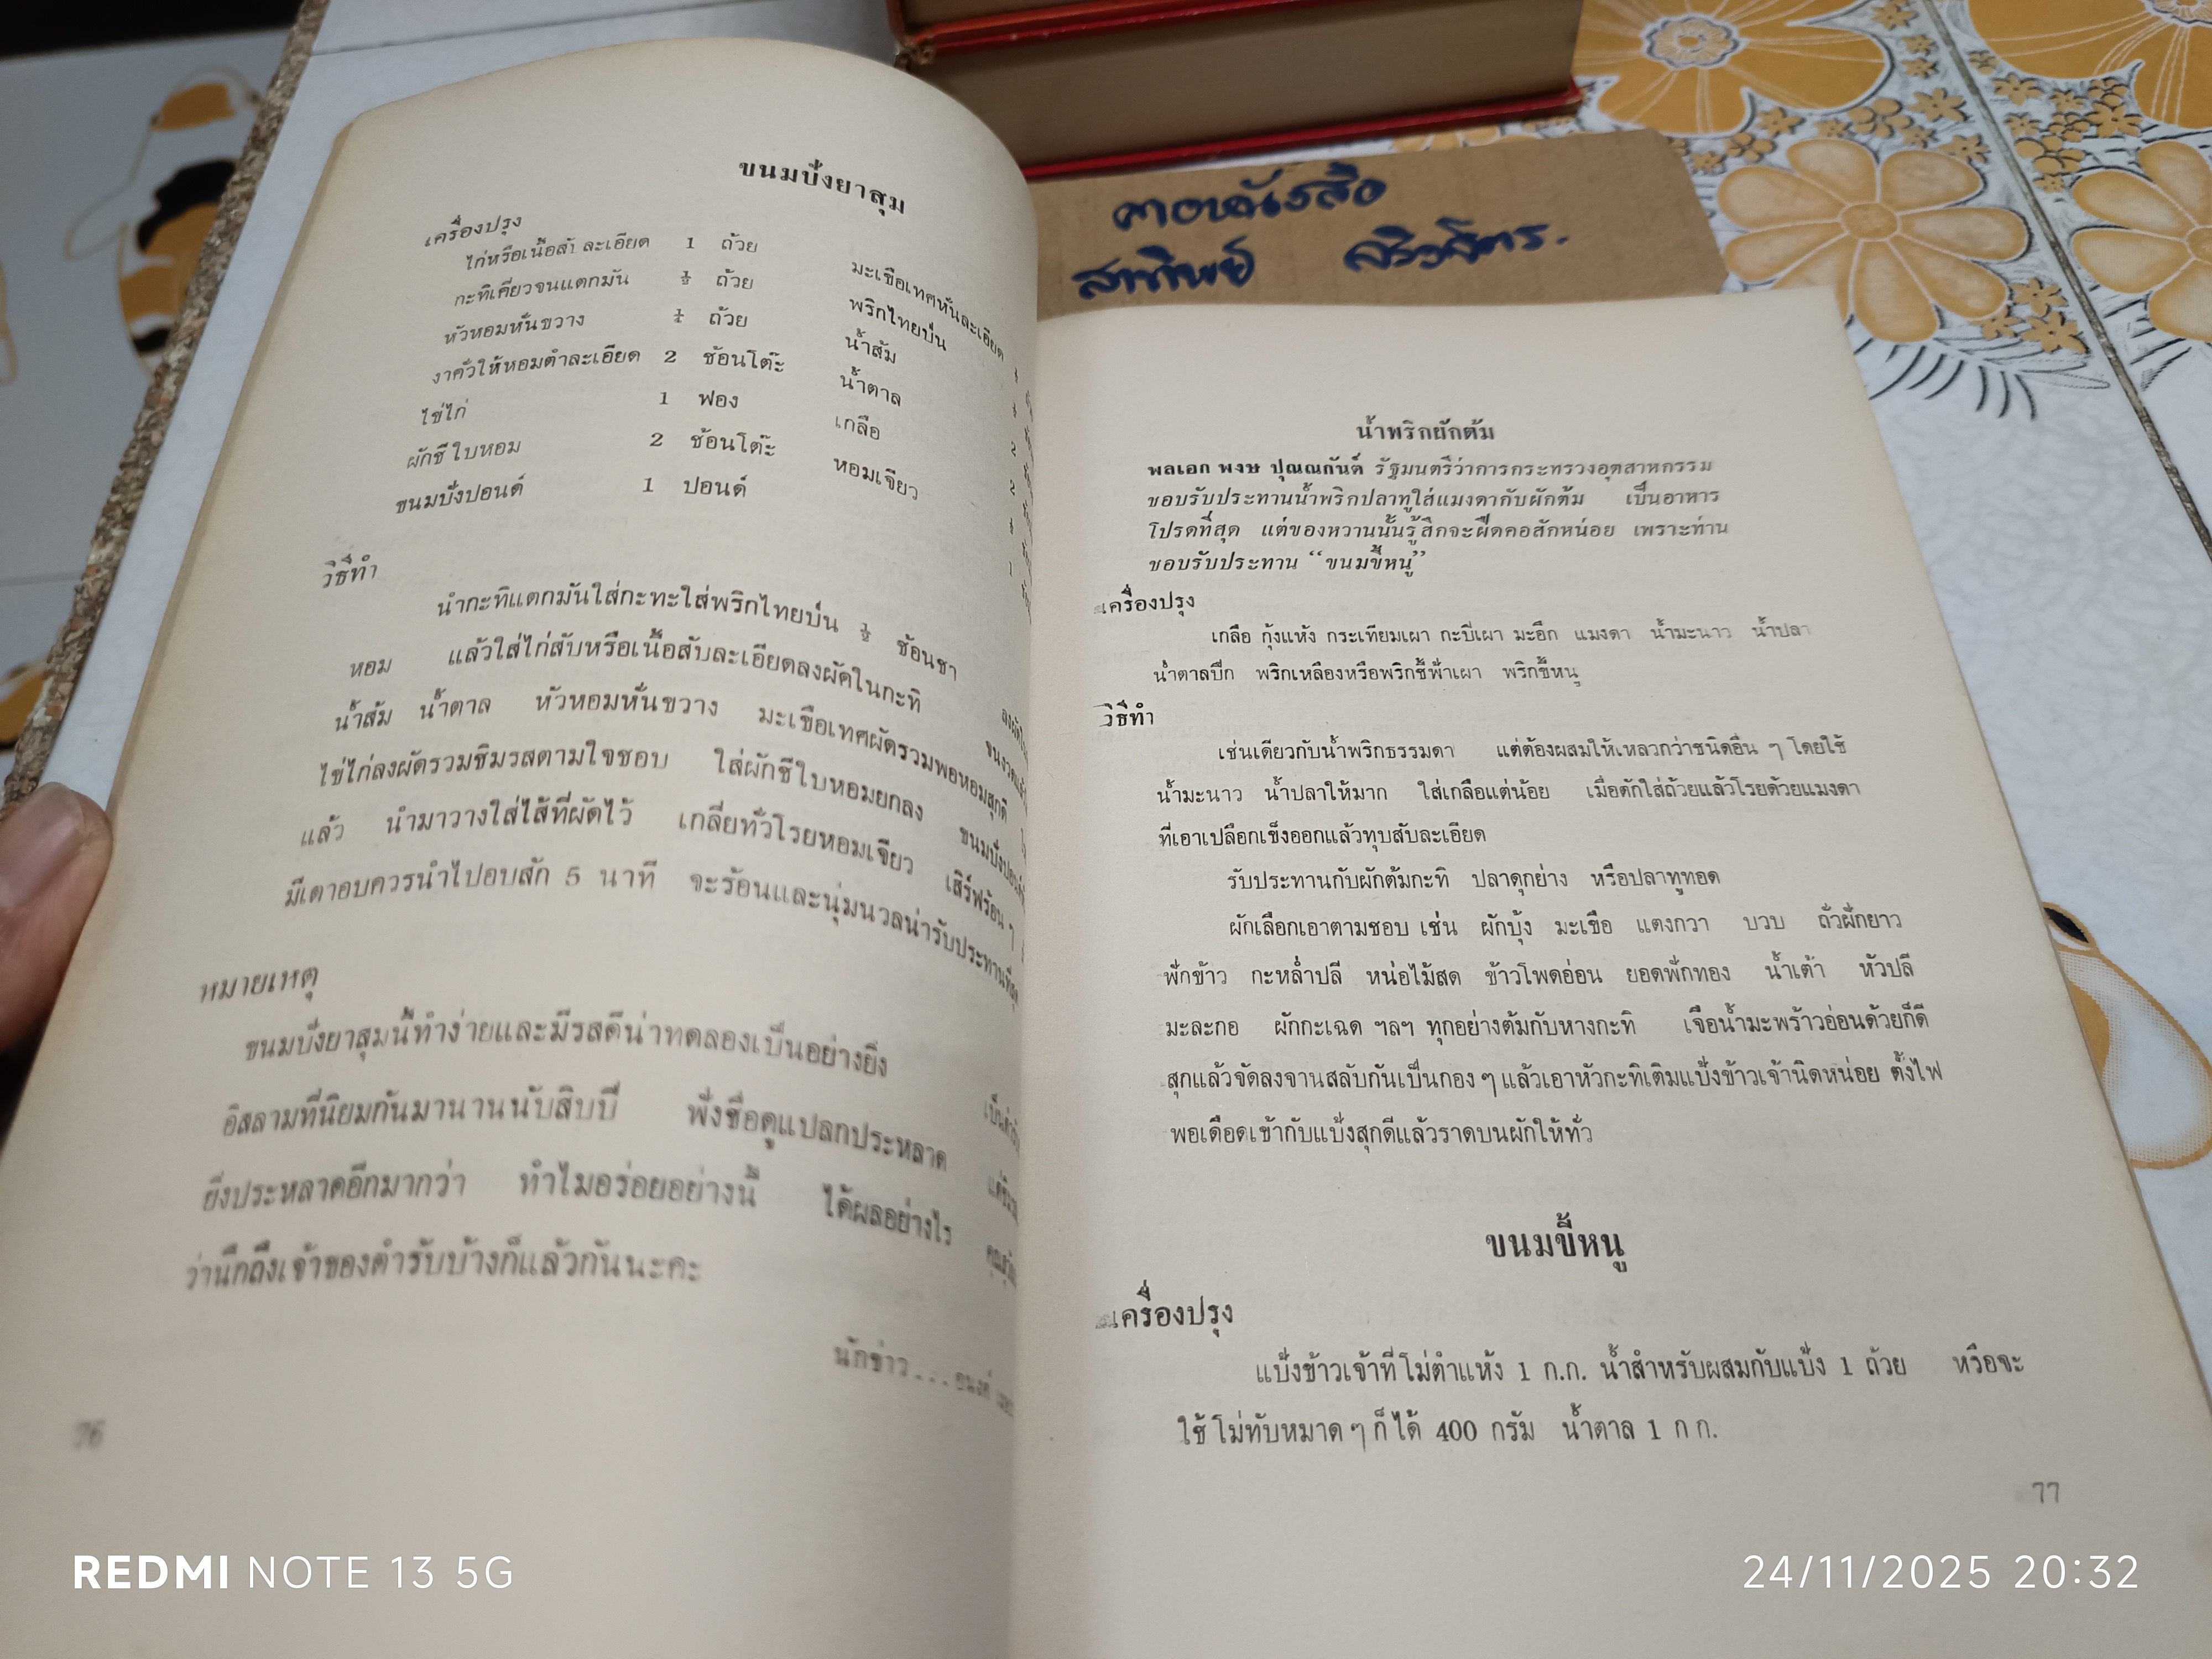 ขนมปังยาสุม
เครื่องปรุง
ไก่หรือเนื้อล้า ละเอียด 1 ถ้วย มะเขือเทศหั่นละเอียด
กะทิเคี่ยวจนแตกมัน ½ ถ้วย พริกไทยป่น
หัวหอมหั่นขวาง ถ้วย น้ำส้ม
งาคั่วให้หอมตำละเอียด 2 ช้อนโต๊ะ น้ำตาล
ไข่ไก่ 1 ฟอง เกลือ
ผักชี ใบหอม 2 ช้อนโต๊ะ หอมเจียว
ขนมปังปอนด์ 1 ปอนด์
วิธีทำ
นำกะทิแตกมันใส่กะทะใส่พริกไทยป่น ½ ช้อนชา
หอม แล้วใส่ไก่สับหรือเนื้อสับละเอียดลงผัดในกะทิ
น้ำส้ม น้ำตาล หัวหอมหั่นขวาง มะเขือเทศผัดรวมพอหอมสุกดี
ไข่ไก่ลงผัดรวมชิมรสตามใจชอบ ใส่ผักชีใบหอมยกลง ขนมปังปอนด์
แล้ว นำมาวางใส่ไส้ที่ผัดไว้ เกลี่ยทั่วโรยหอมเจียว เสิร์ฟร้อน ๆ
มีเตาอบควรนำไปอบสัก 5 นาที จะร้อนและนุ่มนวลน่ารับประทานที่สุด
หมายเหตุ
ขนมปังยาสุมนี้ทำง่ายและมีรสดีน่าทดลองเป็นอย่างยิ่ง
อิสลามที่นิยมกันมานานนับสิบปี ฟังชื่อดูแปลกประหลาด
ยิ่งประหลาดอีกมากกว่า ทำไมอร่อยอย่างนี้ ได้ผลอย่างไร
ว่านึกถึงเจ้าของตำรับบ้างก็แล้วกันนะคะ
นักข่าว...อนงค์
76
คาอหนังสือ
สาทิพย์
น้ำพริกยักต้ม
พลเอก พงษ ปุณณกันต์ รัฐมนตรีว่าการกระทรวงอุตสาหกรรม
ชอบรับประทานน้ำพริกปลาทูใส่แมงดากับผักต้ม เป็นอาหาร
โปรดที่สุด แต่ของหวานนั้นรู้สึกจะฝืดคอสักหน่อย เพราะท่าน
ชอบรับประทาน “ขนมขี้หนู”
เครื่องปรุง
เกลือ กุ้งแห้ง กระเทียมเผา กะปิเผา มะอึก แมงดา น้ำมะนาว น้ำปลา
น้ำตาลปึก พริกเหลืองหรือพริกชี้ฟ้าเผา พริกขี้หนู
วิธีทำ
เช่นเดียวกับน้ำพริกธรรมดา แต่ต้องผสมให้เหลวกว่าชนิดอื่น ๆ โดยใช้
น้ำมะนาว น้ำปลาให้มาก ใส่เกลือแต่น้อย เมื่อตักใส่ถ้วยแล้วโรยด้วยแมงดา
ที่เอาเปลือกแข็งออกแล้วทุบสับละเอียด
รับประทานกับผักต้มกะทิ ปลาดุกย่าง หรือปลาทูทอด
ผักเลือกเอาตามชอบ เช่น ผักบุ้ง มะเขือ แตงกวา บวบ ถั่วฝักยาว
ฟักข้าว กะหล่ำปลี หน่อไม้สด ข้าวโพดอ่อน ยอดฟักทอง น้ำเต้า หัวปลี
มะละกอ ผักกะเฉด ฯลฯ ทุกอย่างต้มกับหางกะทิ เจือน้ำมะพร้าวอ่อนด้วยก็ดี
สุกแล้วจัดลงจานสลับกันเป็นกอง ๆ แล้วเอาหัวกะทิเติมแป้งข้าวเจ้านิดหน่อย ตั้งไฟ
พอเดือดเข้ากับแป้งสุกดีแล้วราดบนผักให้ทั่ว
ขนมขี้หนู
เครื่องปรุง
แป้งข้าวเจ้าที่โม่ตำแห้ง 1 ก.ก. น้ำสำหรับผสมกับแป้ง 1 ถ้วย หรือจะ
ใช้โม่ทับหมาด ๆ ก็ได้ 400 กรัม น้ำตาล 1 ก ก.
77
REDMI NOTE 13 5G
24/11/2025 20:32